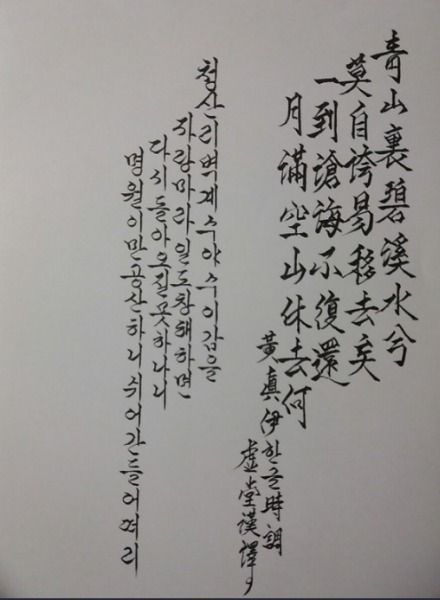 青山裏碧溪水兮
莫自誇易移去矣
一到滄海不復還
月滿空山休去何
黃真伊한글時調
虛堂漢譯
청산리벽계수야수이감을
자랑마라일도창해하면
다시돌아오질못하나니
명월이만공산하니쉬어간들어떠리